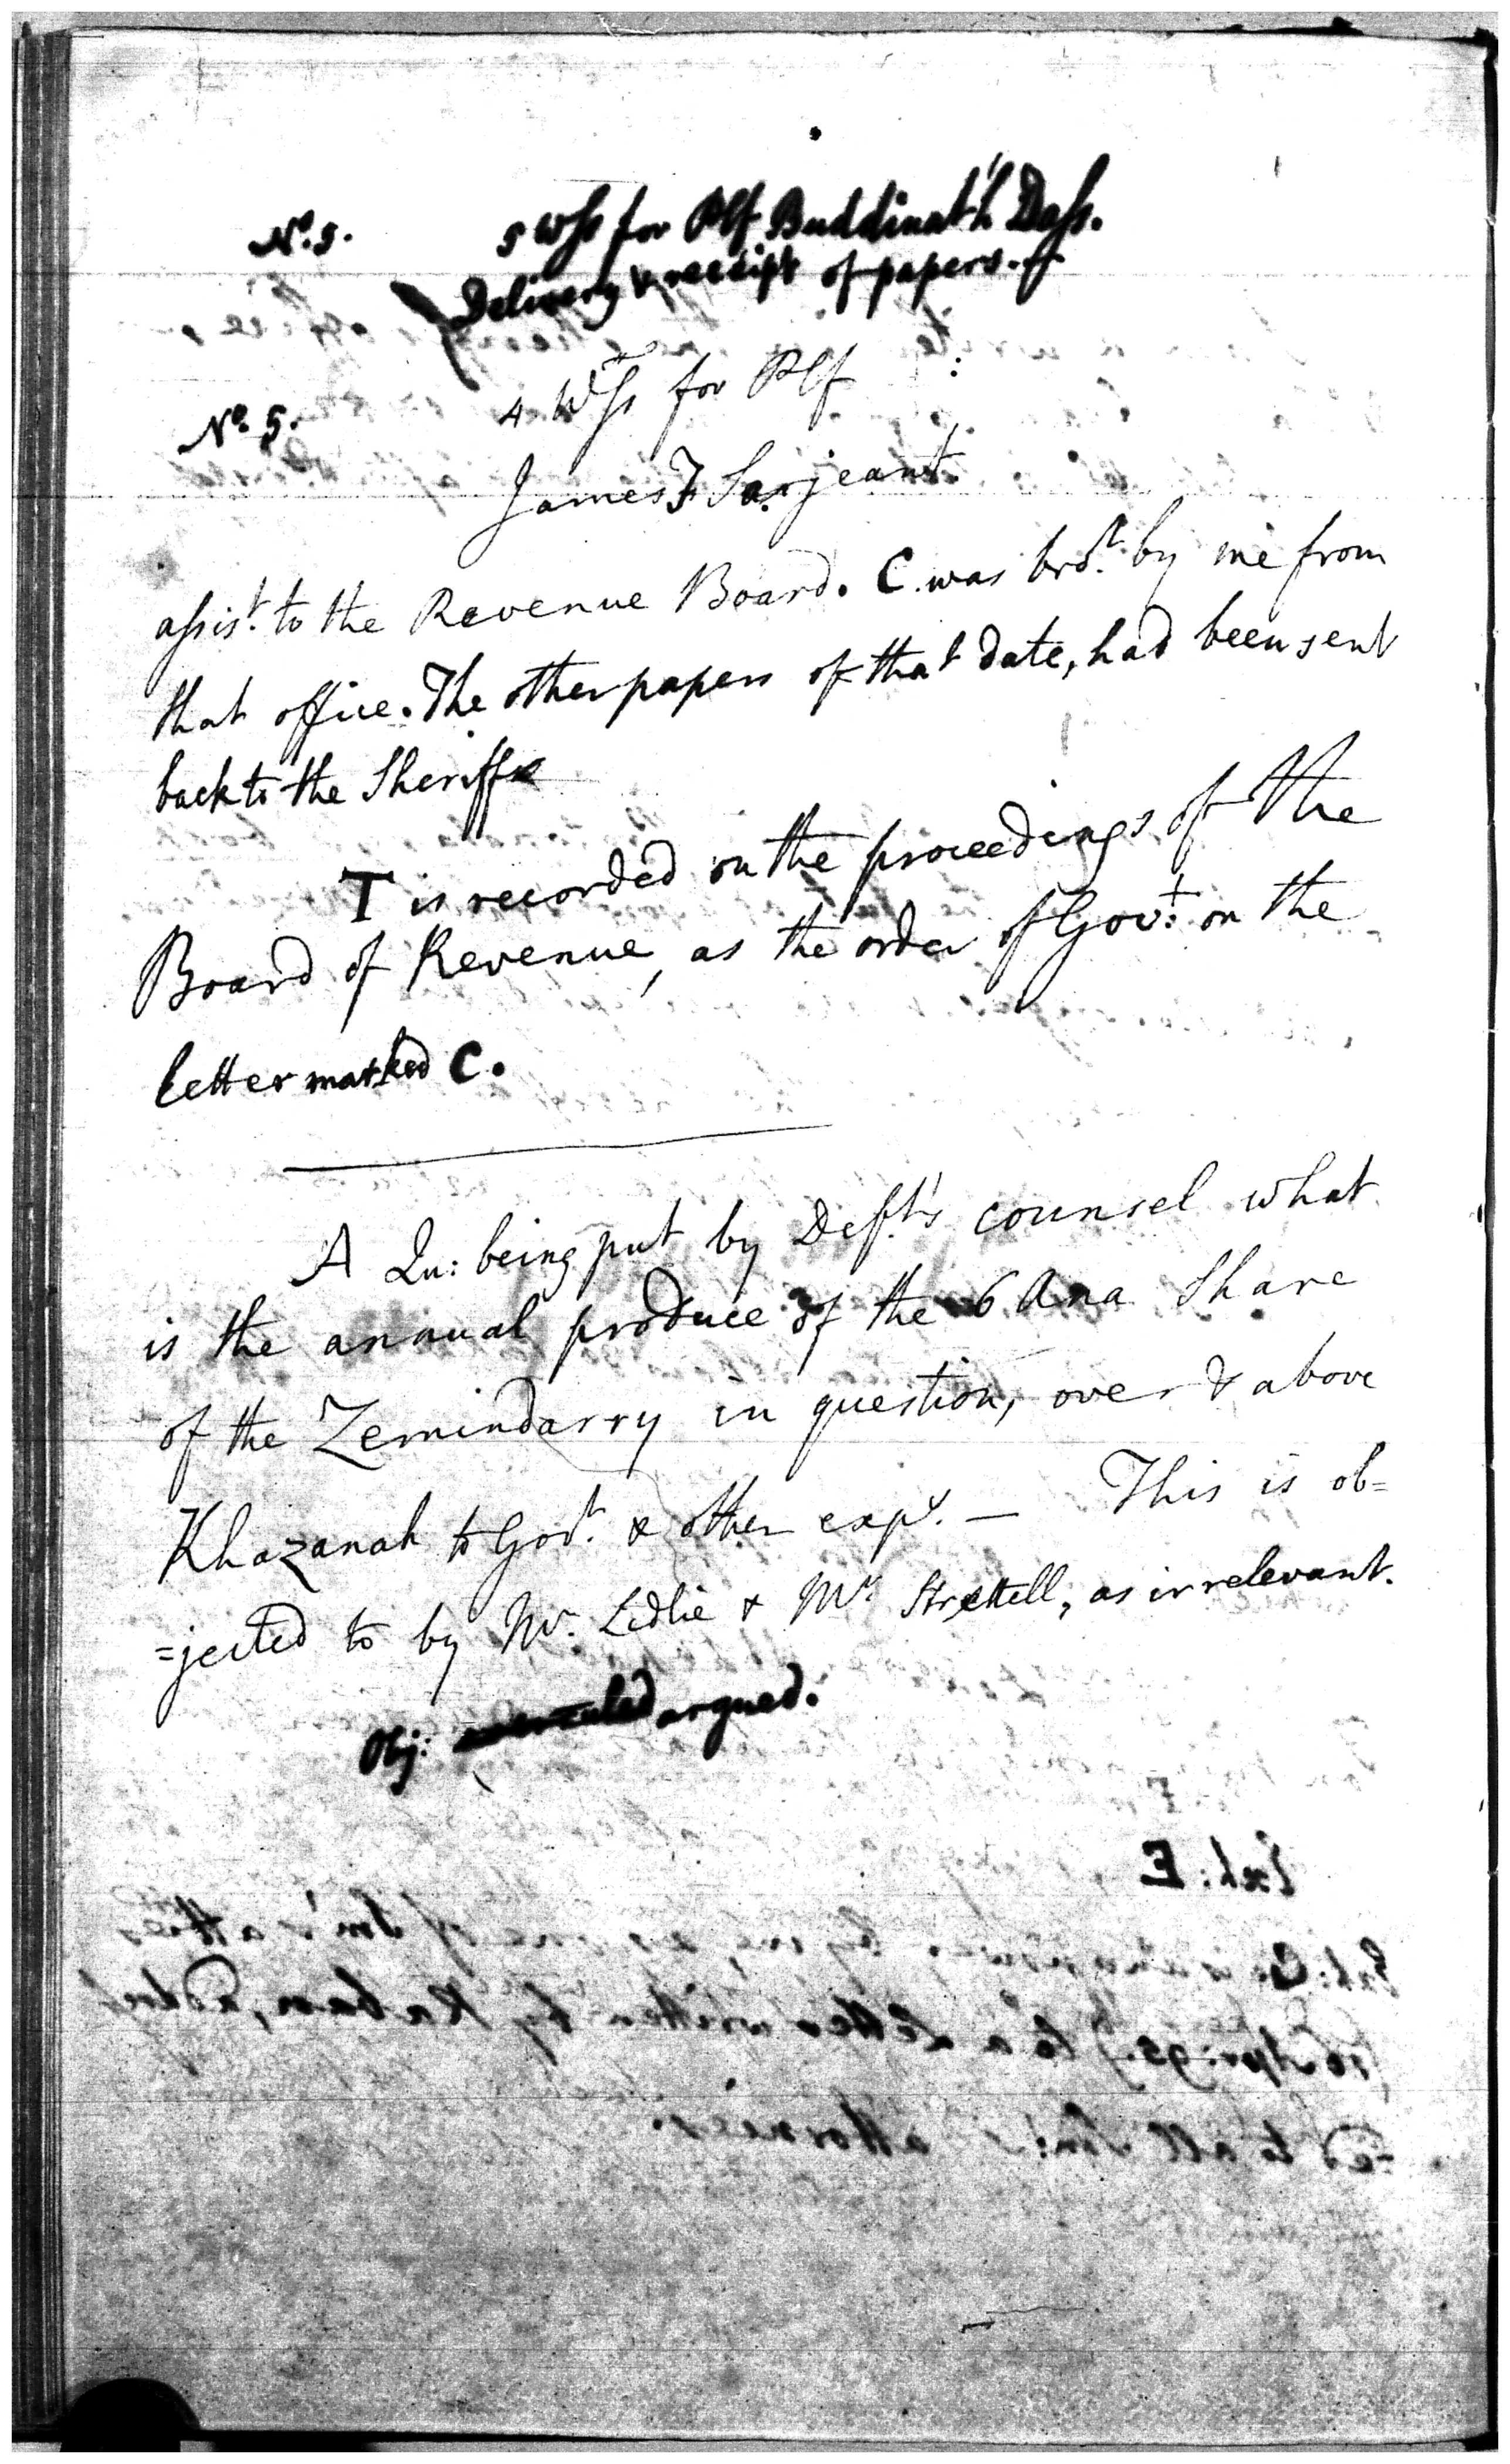 No. 5. 5 Wss for Plf Buddinath Dass.
Delivery & receipt of papers.
No. 5. 4 Wss for Plf
James F Sarjeant
assist. to the Revenue Board. C. was brot. by me from
that office. The other papers of that date, had been sent
back to the Sheriff
T is recorded on the proceedings of the
Board of Revenue, as the order of Govt. on the
letter marked C.
A Qu: being put by Deft's counsel what
is the annual produce of the 6 Ana Share
of the Zemindarry in question, over & above
Khazanah to Govt. & other exps. — This is ob=
=jected to by Mr. Ledlie & Mr. Strettell, as irrelevant.
Obj: overruled argued.